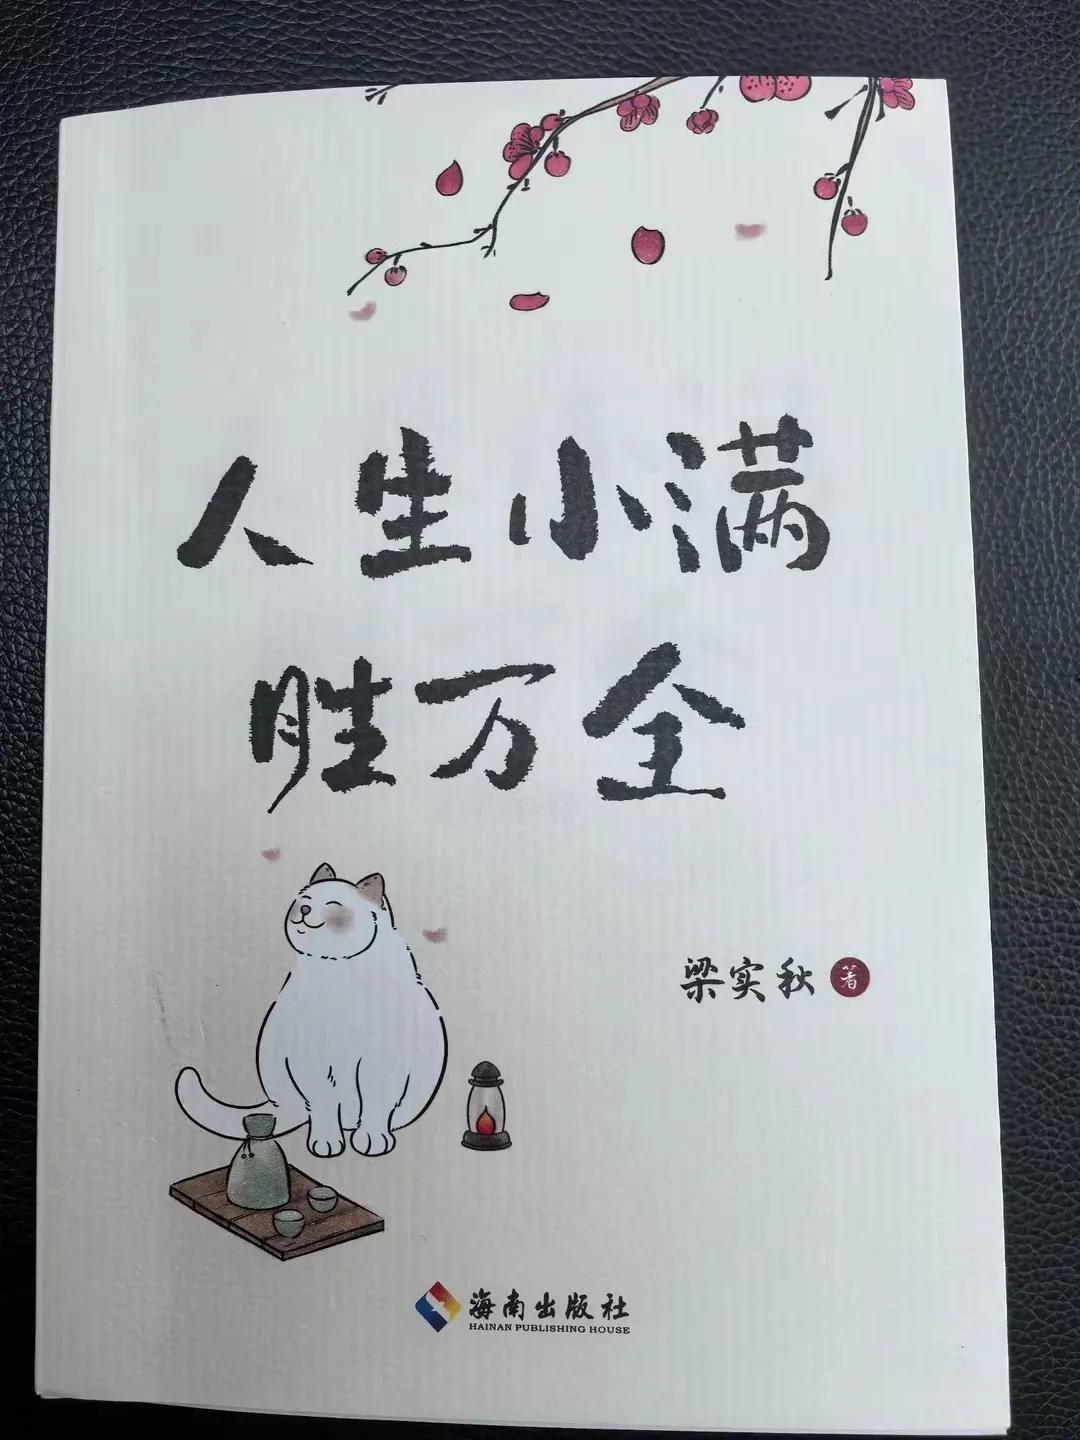 人生小满
胜万全
梁实秋 著
海南出版社
HAINAN PUBLISHING HOUSE